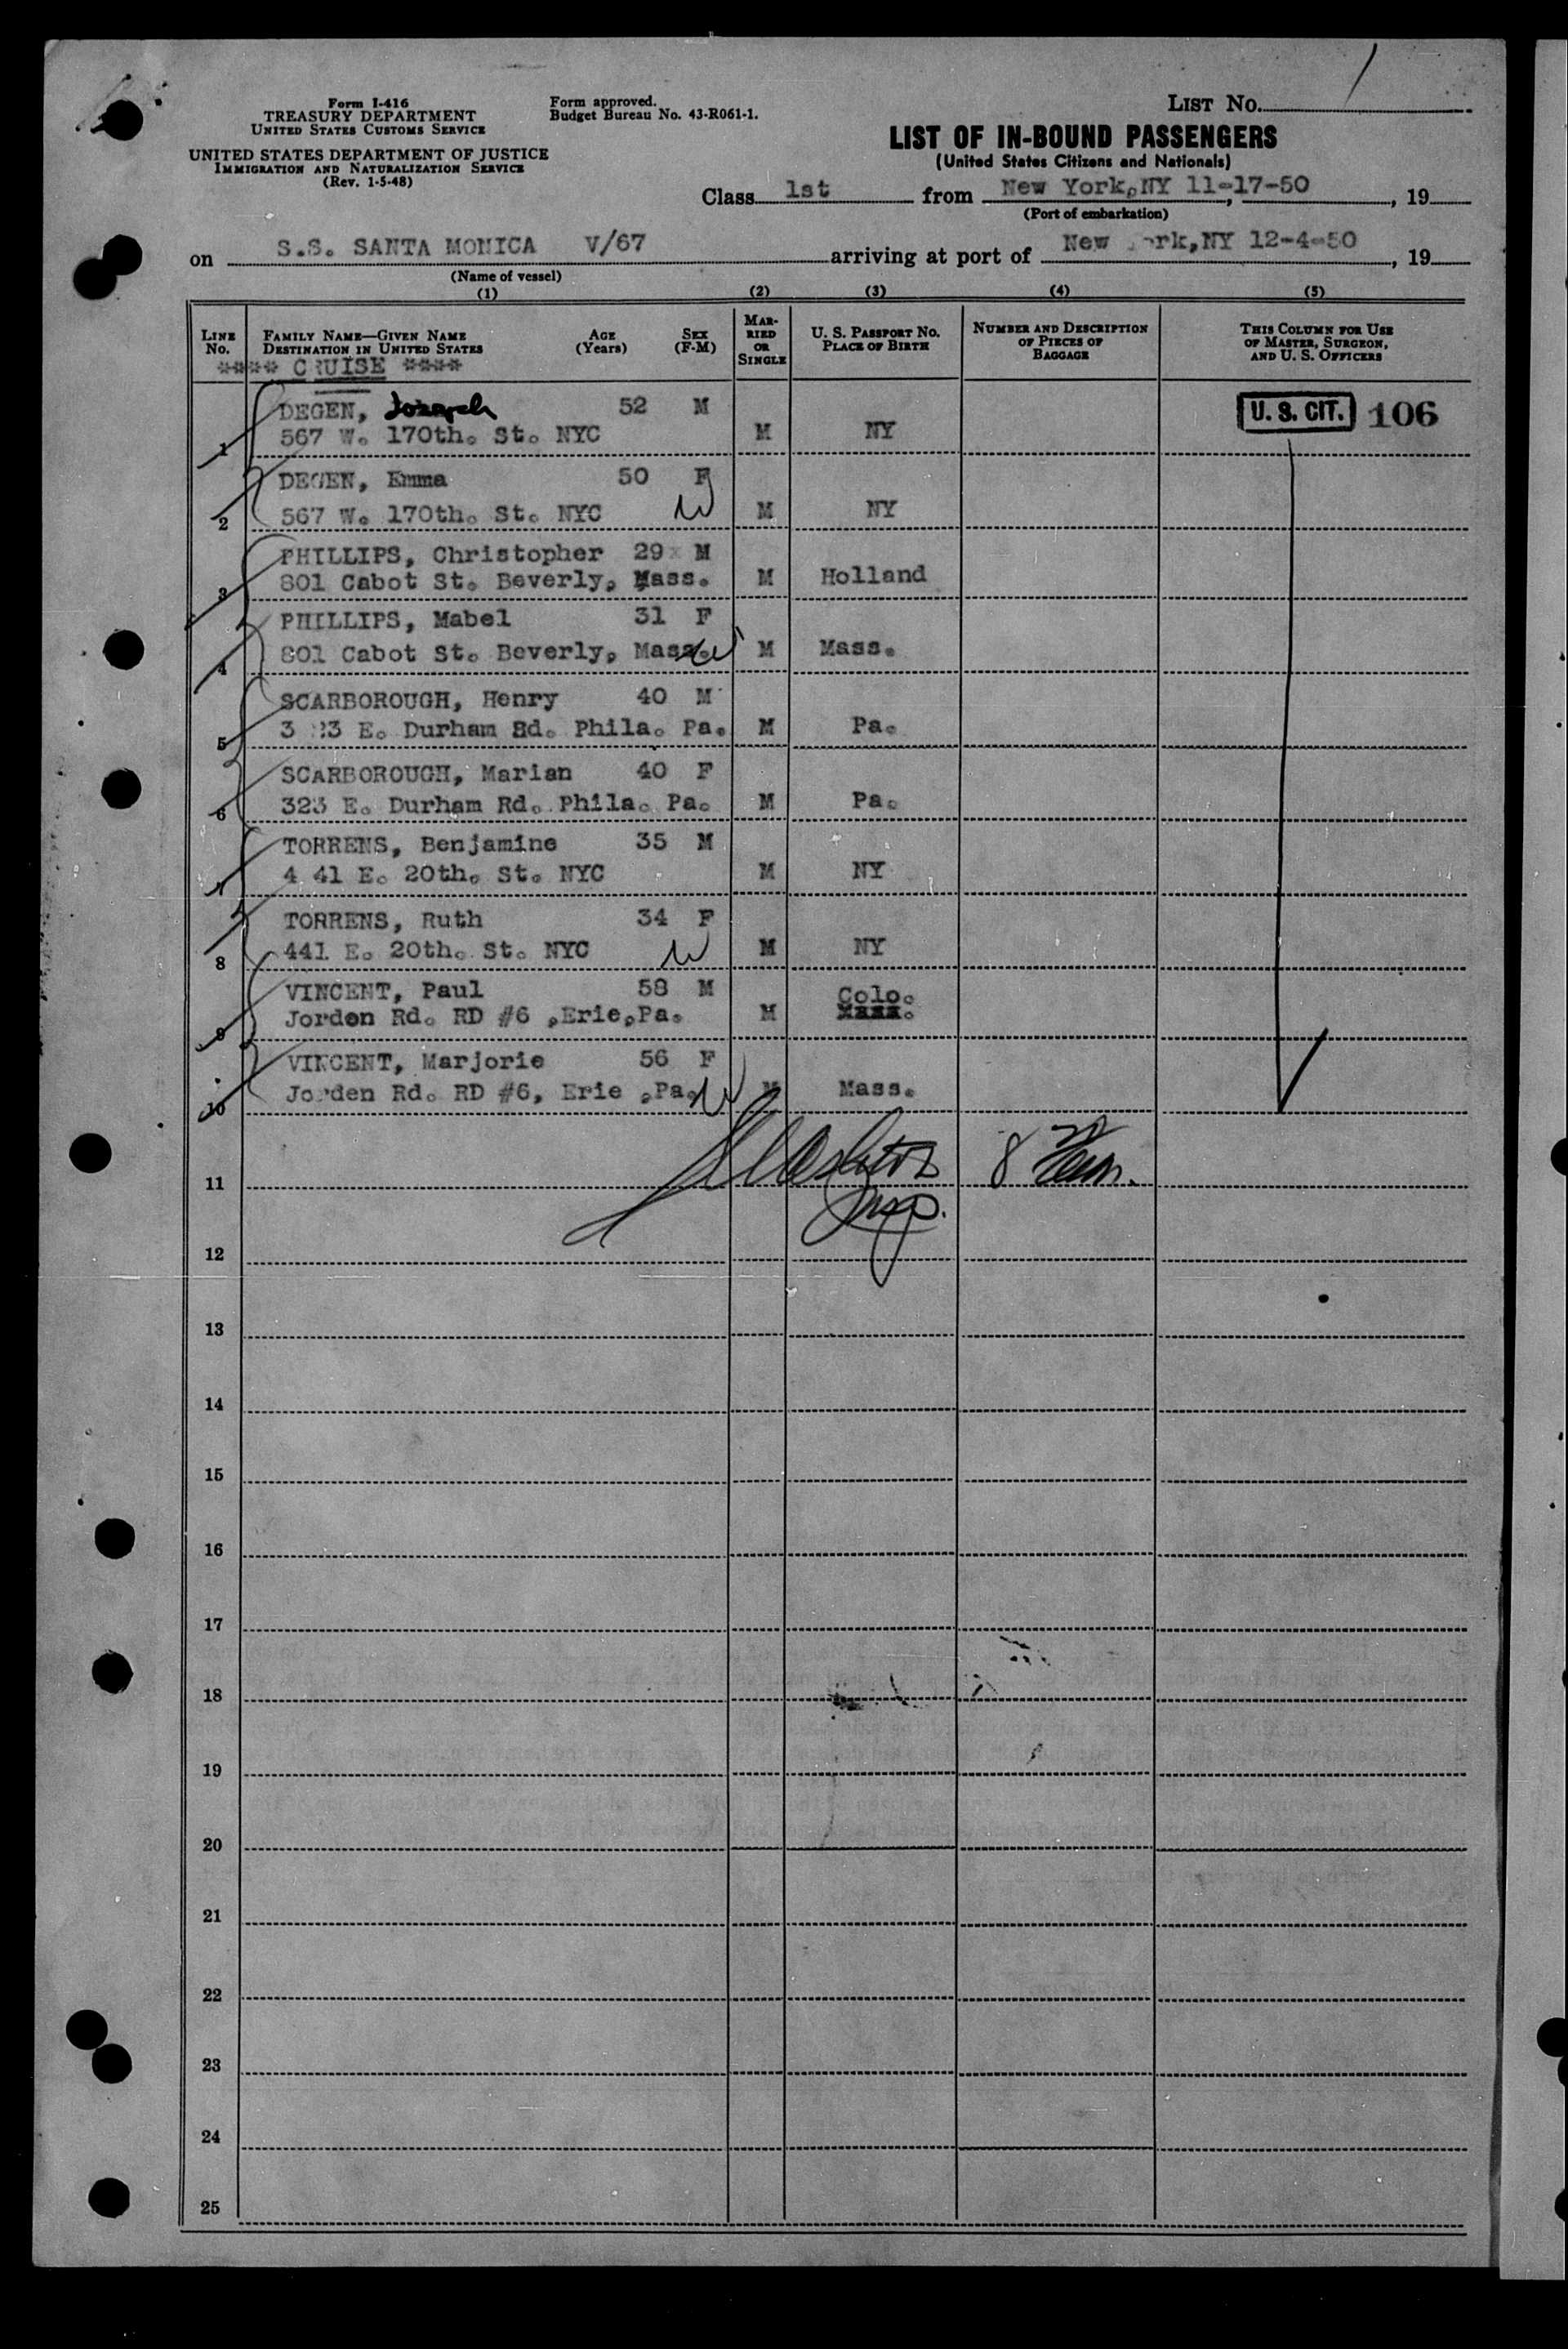 LIST NO. /
Form I-416
TREASURY DEPARTMENT
UNITED STATES CUSTOMS SERVICE
Form approved.
Budget Bureau No. 43-R061-1.
UNITED STATES DEPARTMENT OF JUSTICE
IMMIGRATION AND NATURALIZATION SERVICE
(Rev. 1-5-48)
LIST OF IN-BOUND PASSENGERS
(United States Citizens and Nationals)
Class 1st from New York,NY 11-17-50, 19
(Port of embarkation)
on S.S. SANTA MONICA V/67 arriving at port of New rk,NY 12-4-50, 19
(Name of vessel)
(1) (2) (3) (4) (5)
LINE NO. FAMILY NAME—GIVEN NAME DESTINATION IN UNITED STATES AGE (Years) SEX (F-M) MARRIED OR SINGLE U. S. PASSPORT NO. PLACE OF BIRTH NUMBER AND DESCRIPTION OF PIECES OF BAGGAGE THIS COLUMN FOR USE OF MASTER, SURGEON, AND U. S. OFFICERS
**** CRUISE ****
DEGEN, Joseph 52 M U. S. CIT. 106
1 567 W. 170th. St. NYC M NY
DEGEN, Emma 50 F
2 567 W. 170th. St. NYC M NY
PHILLIPS, Christopher 29 M
3 801 Cabot St. Beverly, Mass. M Holland
PHILLIPS, Mabel 31 F
4 801 Cabot St. Beverly, Mass. M Mass.
SCARBOROUGH, Henry 40 M
5 3 23 E. Durham Rd. Phila. Pa. M Pa.
SCARBOROUGH, Marian 40 F
6 323 E. Durham Rd. Phila. Pa. M Pa.
TORRENS, Benjamine 35 M
7 4 41 E. 20th. St. NYC M NY
TORRENS, Ruth 34 F
8 441 E. 20th. St. NYC M NY
VINCENT, Paul 58 M Colo.
9 Jorden Rd. RD #6 ,Erie,Pa. M
VINCENT, Marjorie 56 F
10 Jorden Rd. RD #6, Erie ,Pa. M Mass.
11 8
Insp.
12
13
14
15
16
17
18
19
20
21
22
23
24
25